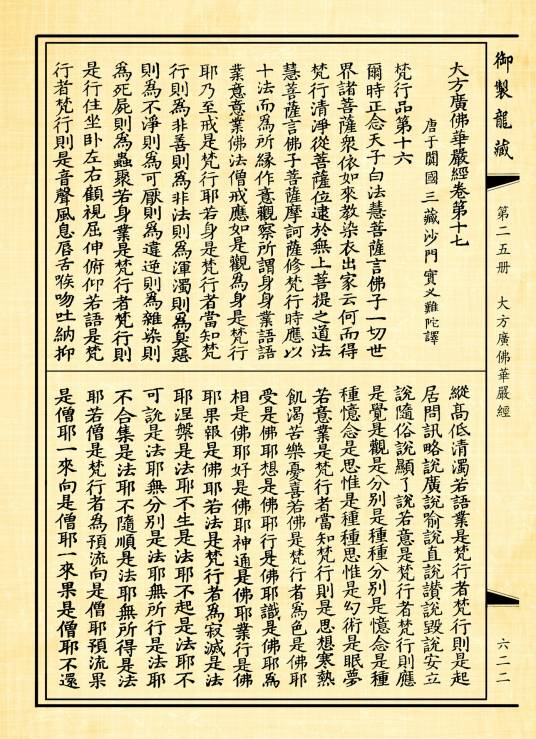 御製龍藏
第二五册　大方廣佛華嚴經
六二二
大方廣佛華嚴經卷第十七
唐于闐國三藏沙門實叉難陀譯
梵行品第十六
爾時正念天子白法慧菩薩言佛子一切世
界諸菩薩衆依如來教染衣出家云何而得
梵行清淨從菩薩位逮於無上菩提之道法
慧菩薩言佛子菩薩摩訶薩修梵行時應以
十法而爲所緣作意觀察所謂身身業語語
業意意業佛法僧戒應如是觀爲身是梵行
耶乃至戒是梵行耶若身是梵行者當知梵
行則爲非善則爲非法則爲渾濁則爲臭惡
則爲不淨則爲可厭則爲違逆則爲雜染則
爲死屍則爲蟲聚若身業是梵行者梵行則
是行住坐卧左右顧視屈伸俯仰若語是梵
行者梵行則是音聲風息脣舌喉吻吐納抑
縱高低清濁若語業是梵行者梵行則是起
居問訊略說廣說喻說直說讚說毀說安立
說隨俗說顯了說若意是梵行者梵行則應
是覺是觀是分别是種種分别是憶念是種
種憶念是思惟是種種思惟是幻術是眠夢
若意業是梵行者當知梵行則是思想寒熱
飢渴苦樂憂喜若佛是梵行者爲色是佛耶
受是佛耶想是佛耶行是佛耶識是佛耶爲
相是佛耶好是佛耶神通是佛耶業行是佛
耶果報是佛耶若法是梵行者爲寂滅是法
耶涅槃是法耶不生是法耶不起是法耶不
可說是法耶無分别是法耶無所行是法耶
不合集是法耶不隨順是法耶無所得是法
耶若僧是梵行者爲預流向是僧耶預流果
是僧耶一來向是僧耶一來果是僧耶不還